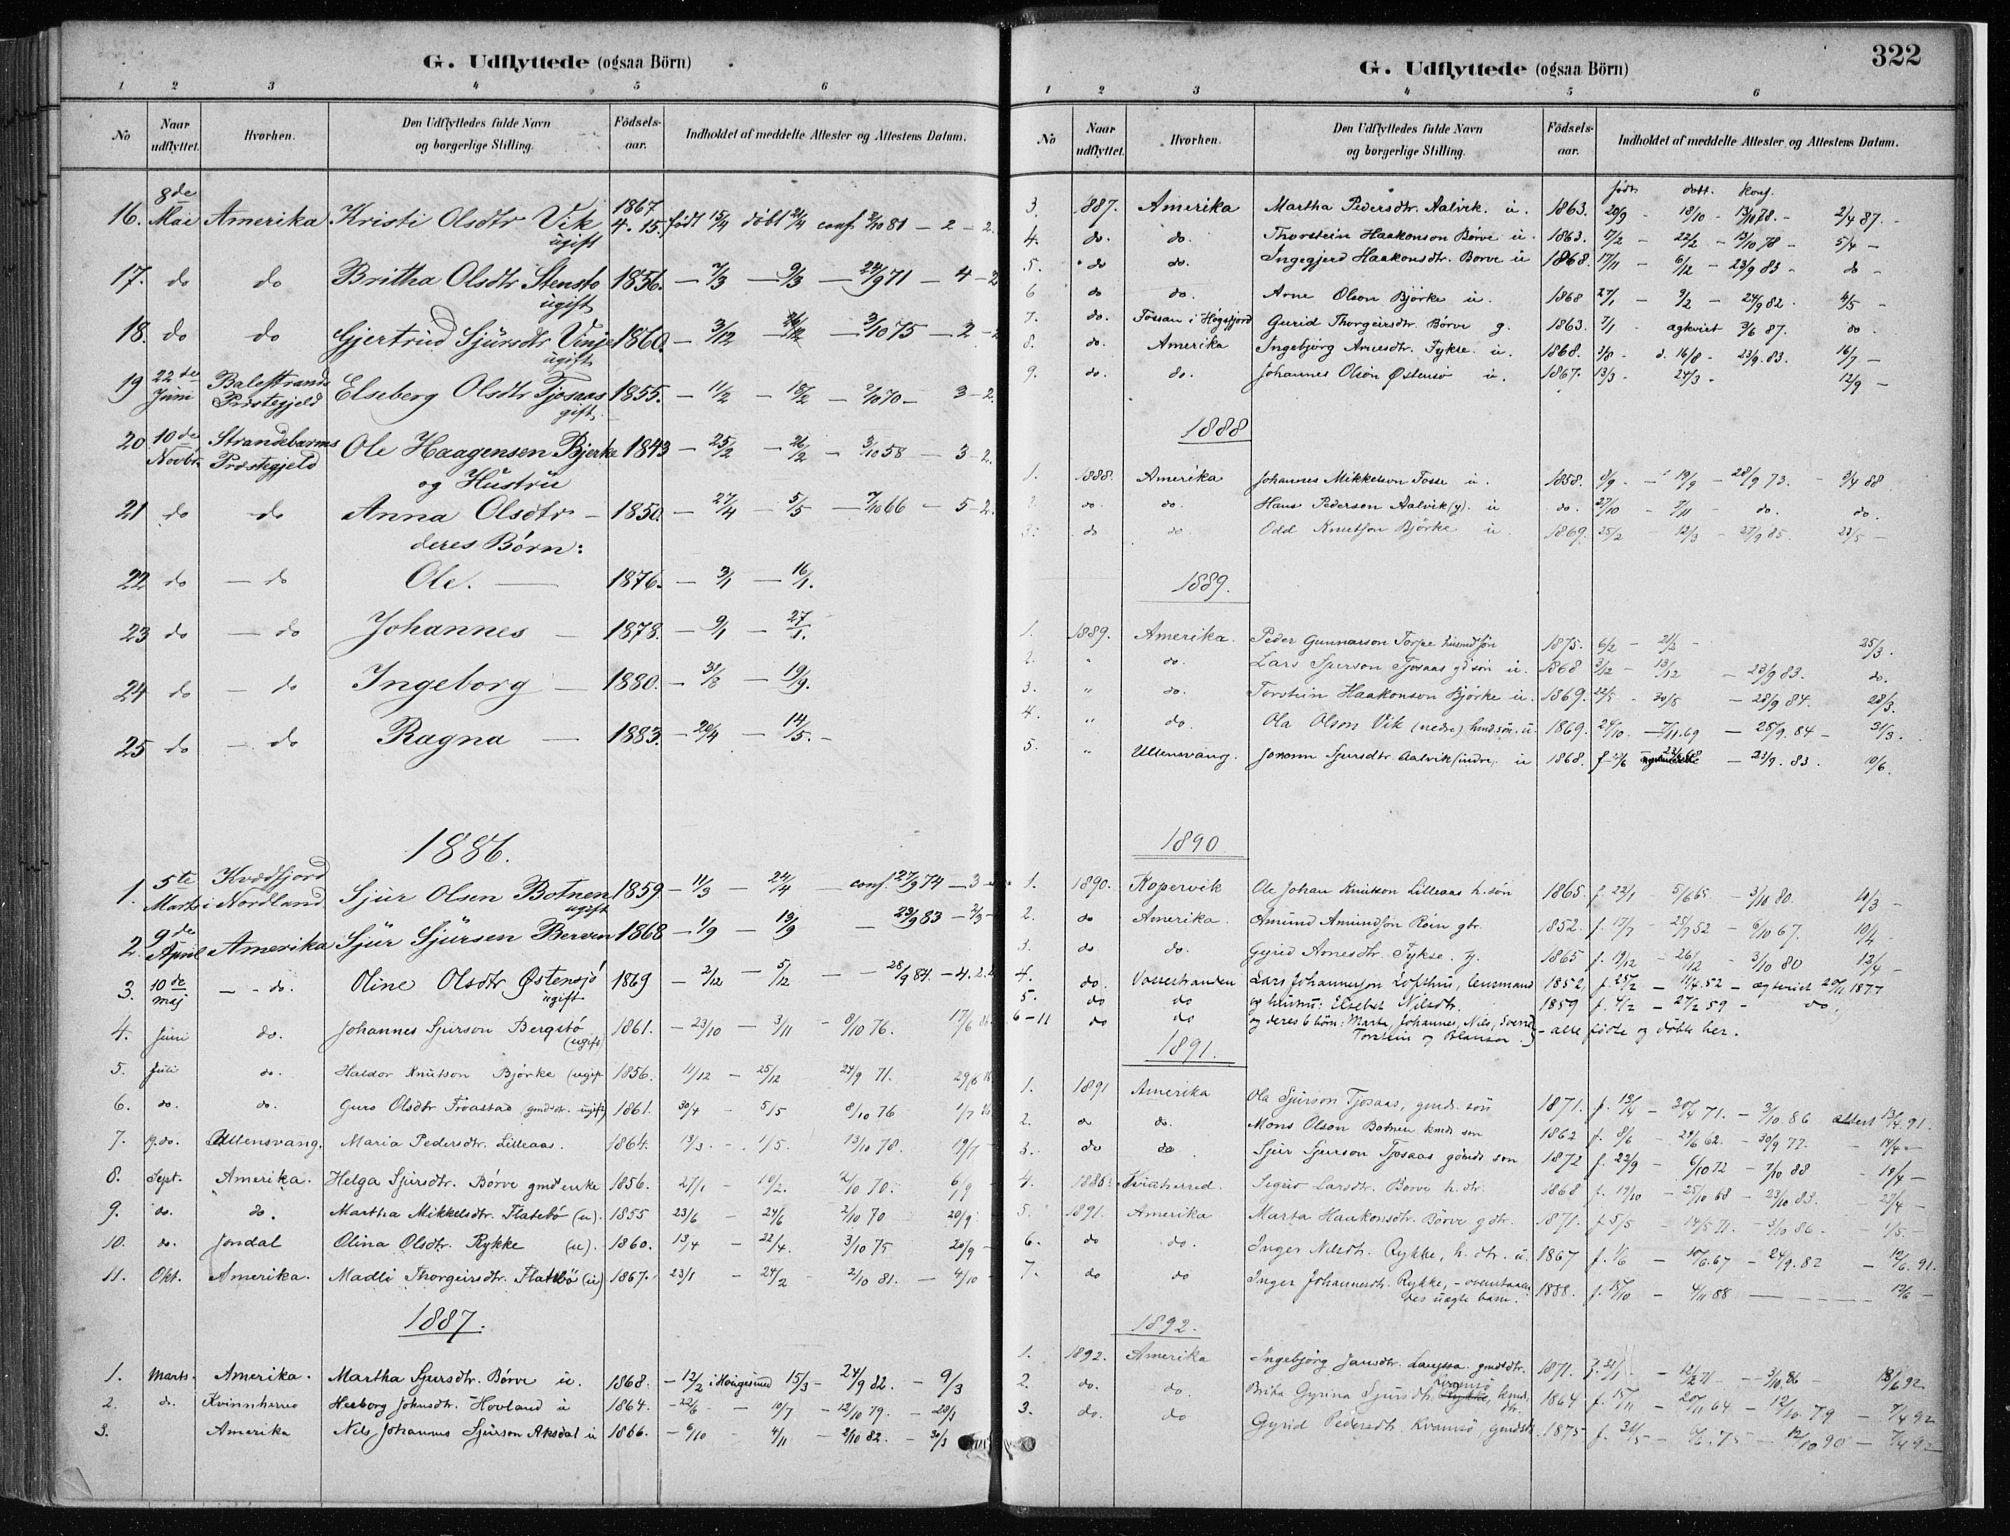 G. Udflyttede (ogsaa Börn)
1 2 3 4 5 6
No Naar udflyttet. Hvorhen. Den Udflyttedes fulde Navn og borgerlige Stilling. Fødsels-aar. Indholdet af meddelte Attester og Attestens Datum.
16. 8de Mai Amerika Kristi Olsdtr Vik ugift 1867 4. 15. født 15/4 døbt 21/4 conf. 2/10 81 – 2 – 2.
17. do do Britha Olsdtr Stensto ugift 1856. – 7/3 – 9/3 – 24/9 71 – 4 – 2
18. do do Gjertrud Sjursdtr Vinje ugift 1860. – 3/12 – 26/12 – 3/10 75 – 2 – 2
19 22de Juni Balestrands Præstegjeld Elseberg Olsdtr Tjosaas gift. 1855. – 11/2 – 18/2 – 2/10 70 – 3 – 2.
20 10de Novbr. Strandebarms Præstegjeld Ole Haagensen Bjerke 1843 – 25/2 – 26/2 – 3/10 58 – 3 – 2.
og Hustru
21 do do Anna Olsdtr – 1850. – 27/4 – 5/5 – 7/10 66 – 5 – 2.
deres Børn:
22 do – do Ole. – 1876. – 3/1 – 16/1.
23 do – do Johannes – 1878. – 9/1 – 27/1.
24 do – do Ingeborg – 1880. – 31/8 – 19/9.
25 do – do Ragna – 1883. – 20/4 – 14/5. –
1886.
1. 5te Marts Kvædfjord i Nordland Sjur Olsen Botnen ugift 1859 – 11/3 – 24/4 – conf. 27/9 74 – 3 –
2. 9de April Amerika Sjur Sjursen Berven 1868 – 1/9 – 13/9 – 23/9 83 – 2/3 –
3. 10de maj – – do. Oline Olsdtr Østensjø ugift 1869 – 2/12 – 5/12 – 28/9 84. – 4. 2.
4. Juni do. Johannes Sjurson Bergstø (ugift) 1861. – 23/10 – 3/11 – 8/10 76. 17/6
5. Juli do. Haldor Knutson Bjørke (ugift 1856. 11/12 – 25/12 24/9 71. 29/6
6. do. do. Guro Olsdtr Froastad (gmdsdtr. ugift) 1861. 30/4 – 5/5 8/10 76 1/7
7. do. Ullensvang. Maria Pedersdtr. Lilleaas. 1864. 13/3 – 1/5. 13/10 78. 19/7
8. Sept. Amerika. Helga Sjursdtr. Børve gmdenke 1856. 27/1 – 10/2. 2/10 70. 6/9 –
9. do. do. Martha Mikkelsdtr. Flatebø (u). 1855 23/6 – 24/6 2/10 70 20/9
10. do. Jondal Olina Olsdtr. Rykke (u). 1860. 13/4 – 22/4. 3/10 75 20/9 –
11. Okt. Amerika. Madli Thorgeirsdtr. Flatebø (u) 1867. 23/1 – 24/2 – 2/10 81. – 4/10 –
1887.
1. Marts. Amerika. Martha Sjursdtr. Børve u. 1868. – 12/2 i Haugesund 15/3 – 24/9 82. – 9/3
2. do. Kvinnherred Herborg Johnsdtr. Hovland u 1864. – 22/6 – 10/7 – 12/10 79. – 28/3
3. Amerika Nils Johannes Sjurson Aksdal u 1866. – 6/10 – 4/11 – 2/10 82. – 30/3
322
G. Udflyttede (ogsaa Börn)
1 2 3 4 5 6
No Naar udflyttet. Hvorhen. Den Udflyttedes fulde Navn og borgerlige Stilling. Fødsels-aar. Indholdet af meddelte Attester og Attestens Datum.
født døbt. konf.
3. 887. Amerika Martha Pedersdtr. Aalvik. u. 1863. 20/9 – 18/10 – 13/10 78. – 2/4 87. –
4. do. do. Thorstein Haakonson Børve u. 1863. 17/2 – 22/2 – 13/10 78 – 5/4 –
5. do do. Ingegjerd Haakonsdtr. Børve u 1868. 17/11 – 6/12 – 23/9 83 – do –
6 do do. Arne Olson Bjørke u. 1868 27/1 – 9/2 – 24/9 82. 4/5 –
7. do. Fossan i Høgsfjord Gurid Thorgeirsdtr. Børve g. 1863. 7/1 – ægtviet 3/6 87. do. –
8. do. Amerika Ingebjørg Arnesdtr. Fykse. u. 1868. 3/8 – d. 16/8 – 23/9 83. 16/7 –
9. do. do. Johannes Olson Østensø u. 1867. 13/3 – 24/3 – 12/9 –
1888
1. 1888. Amerika Johannes Mikkelson Fosse u. 1858. 8/9 – 19/9 – 28/9 73. – 9/4 88
2. do do. Hans Pederson Aalvik (y). u do. 27/10 – 7/11 – do. do.
3. do do. Odd Knutson Bjørke u 1869. 25/2 – 12/3 – 27/9 85. 23/5 –
1889.
1. 1889. Amerika. Peder Gunnarson Torpe husmdsøn 1875. 6/2 – 21/2 – 25/3.
2. " do. Lars Sjurson Tjosaas gdsøn u. 1868 3/12 – 13/12 – 23/9 83. do.
3. " do. Torstein Haakonson Bjørke u 1869. 22/5 – 30/5 – 28/9 84. 28/3.
4. " do. Ola Olson Vik (nedre) husd.søn. u. 1869. 24/10. – 7/11.69 – 28/9. 84 – 31/3.
5. " Ullensvang. Johann Sjursdtr Aalvik (indre) u 1868. f. – 23/9. 83. 10/6.
1890
1. 1890. Kopervik Ole Johan Knutson Lilleaas h. søn 1865. f. 22/1 – 5/6 65. – 3/10 80. 10/3 –
2. do Amerika. Amund Amundson Røin gbr. 1852. f. 17/7 – 25/7 52 – 6/10 67. 10/4
3. do do. Gyrid Arnesdtr. Fykse. g. 1865 f. 19/12 – 26/12 – 3/10 80 12/4 –
4. do. Vossestranden Lars Johannesson Lofthus, lensmand 1852. f. 25/2 – 11/4. 52 – ægteviet 28/11 1877
5. do do og hustru: Elsebet Nilsdtr. 1859 f. 4/2 – 27/2 59 – do.
6–11 do do og deres 6 børn: Marta, Johannes, Nils, Sverre, Torstein og – alle fødte og døbte her.
1891.
1. 1891 Amerika Ola Sjurson Tjosaas, gmds. søn 1871. f. 13/4 – 30/4 71. – 3/10 86 attest 13/4. 91.
2. do do. Mons Olson Botnen kmds søn 1862 f. 8/6 – 29/6 62. – 30/9 77. – 14/4 –
3. do do Sjur Sjurson Tjosaas gmds søn 1872 f. 22/9 – 6/10 72 – 7/10 88 – 18/4 –
4. 1886. Kvinherred. Sigrid Larsdtr. Børve h. dtr. 1868 f. 19/10 – 25/10 68 – 23/10 83. – 27/4 –
5. 1891. Amerika Marta Haakonsdtr. Børve g dtr. 1871. f. 5/5 – 14/5 71. – 3/10 86. – 1/5. –
6. do do. Inger Nilsdtr. Rykke, h. dtr. u. 1867 f. 1/6 – 10/6. 67 – 24/9. 82 – 12/6. 91.
7. do do Inger Johannesdtr. Rykke, – ovenstaaendes uægte barn. 1888. f. 15/10 – 4/11 88 – – – – – 12/6 –
1892.
1. 1892. Amerika Ingebjørg Jansdtr. gmdsdtr. 1871. f. 21/1 – 12/2 71 – 3/10 86 – 18/6 92
2. do. do. Brita Gyrina Sjursdtr. Kvamsø kmds. dtr. 1864 f. 15/11 – 20/11 64 – 12/10. 79 – 7/4 92
3. do. do Gyrid Pedersdtr. Kvamsø, gmdsdtr. 1875 f. 31/5 – 6/ . 75 – 12/10 90 – 7/4 92